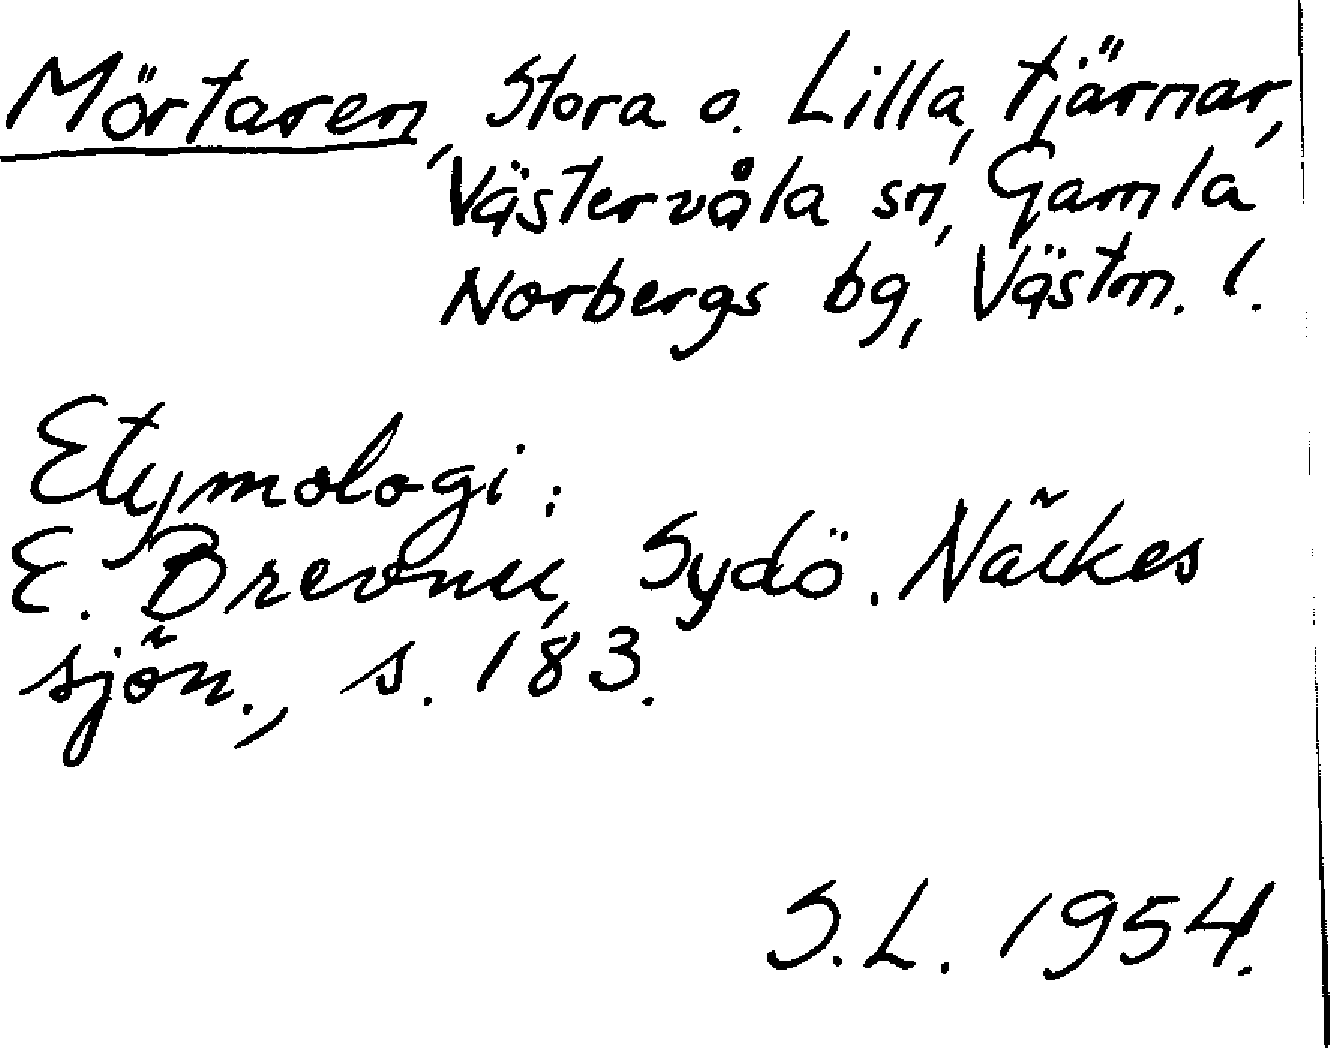 Mörtaren, Stora o. Lilla, tjärnar,
Västervåla sn, Gamla
Norbergs bg, Västm. l.
Etymologi:
E. Brevner, Sydö. Närkes
sjön., s. 183.
S.L. 1954.